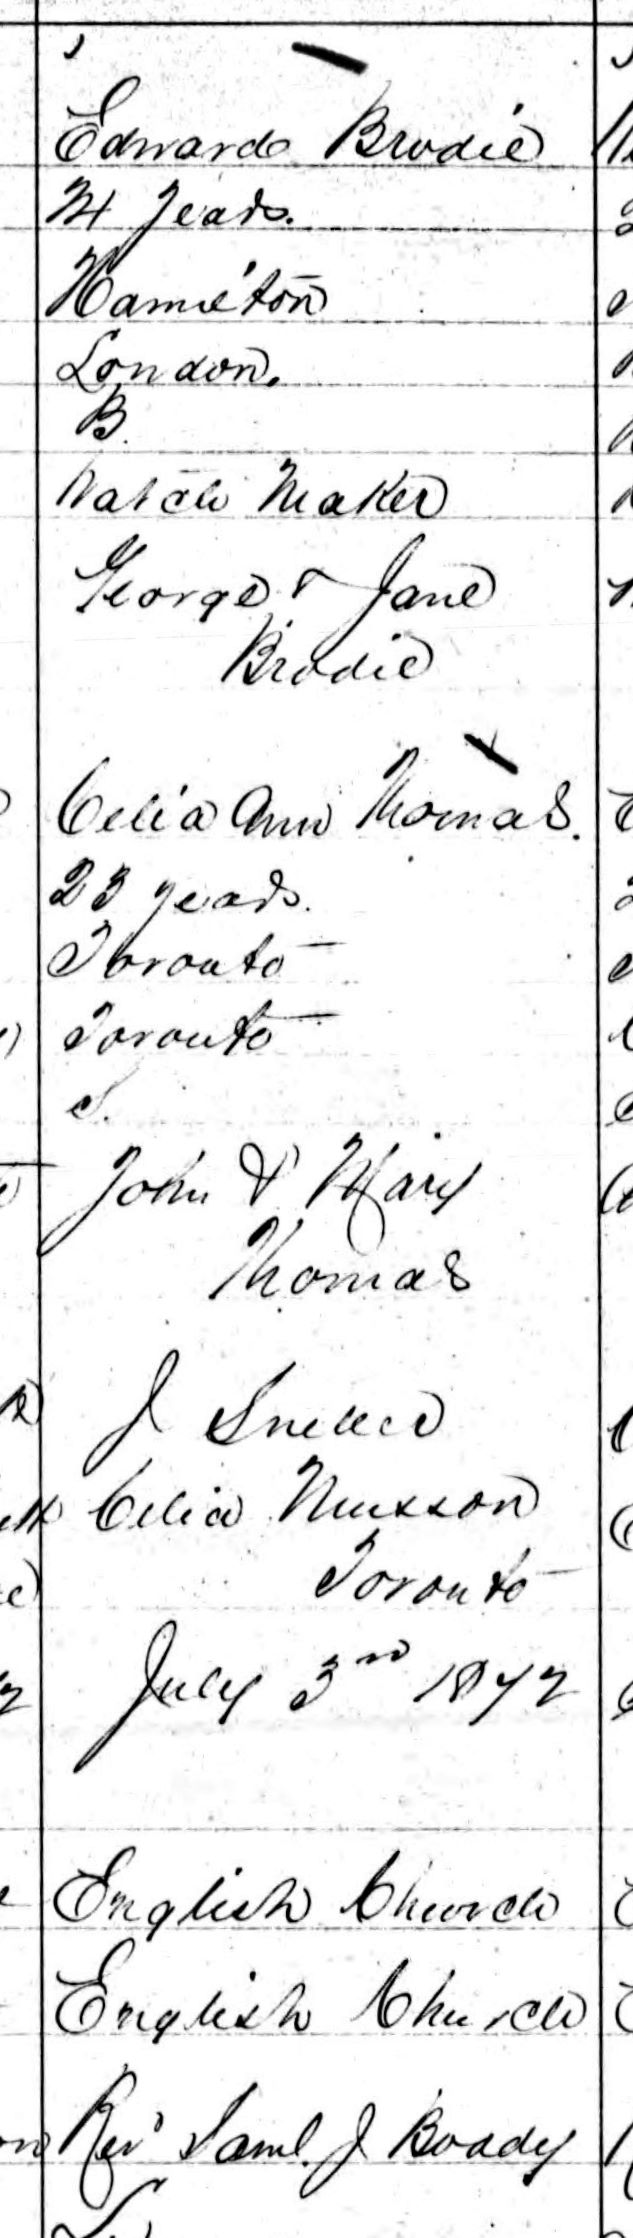 Edward Brodie
24 Years.
Hamilton
London.
B.
Watch Maker
George & Jane
Brodie
Celia Ann Thomas.
23 years.
Toronto
Toronto
S.
John & Mary
Thomas
J
Celia Musson
Toronto
July 3rd 1872
English Church
English Church
Revd Saml. J Boddy